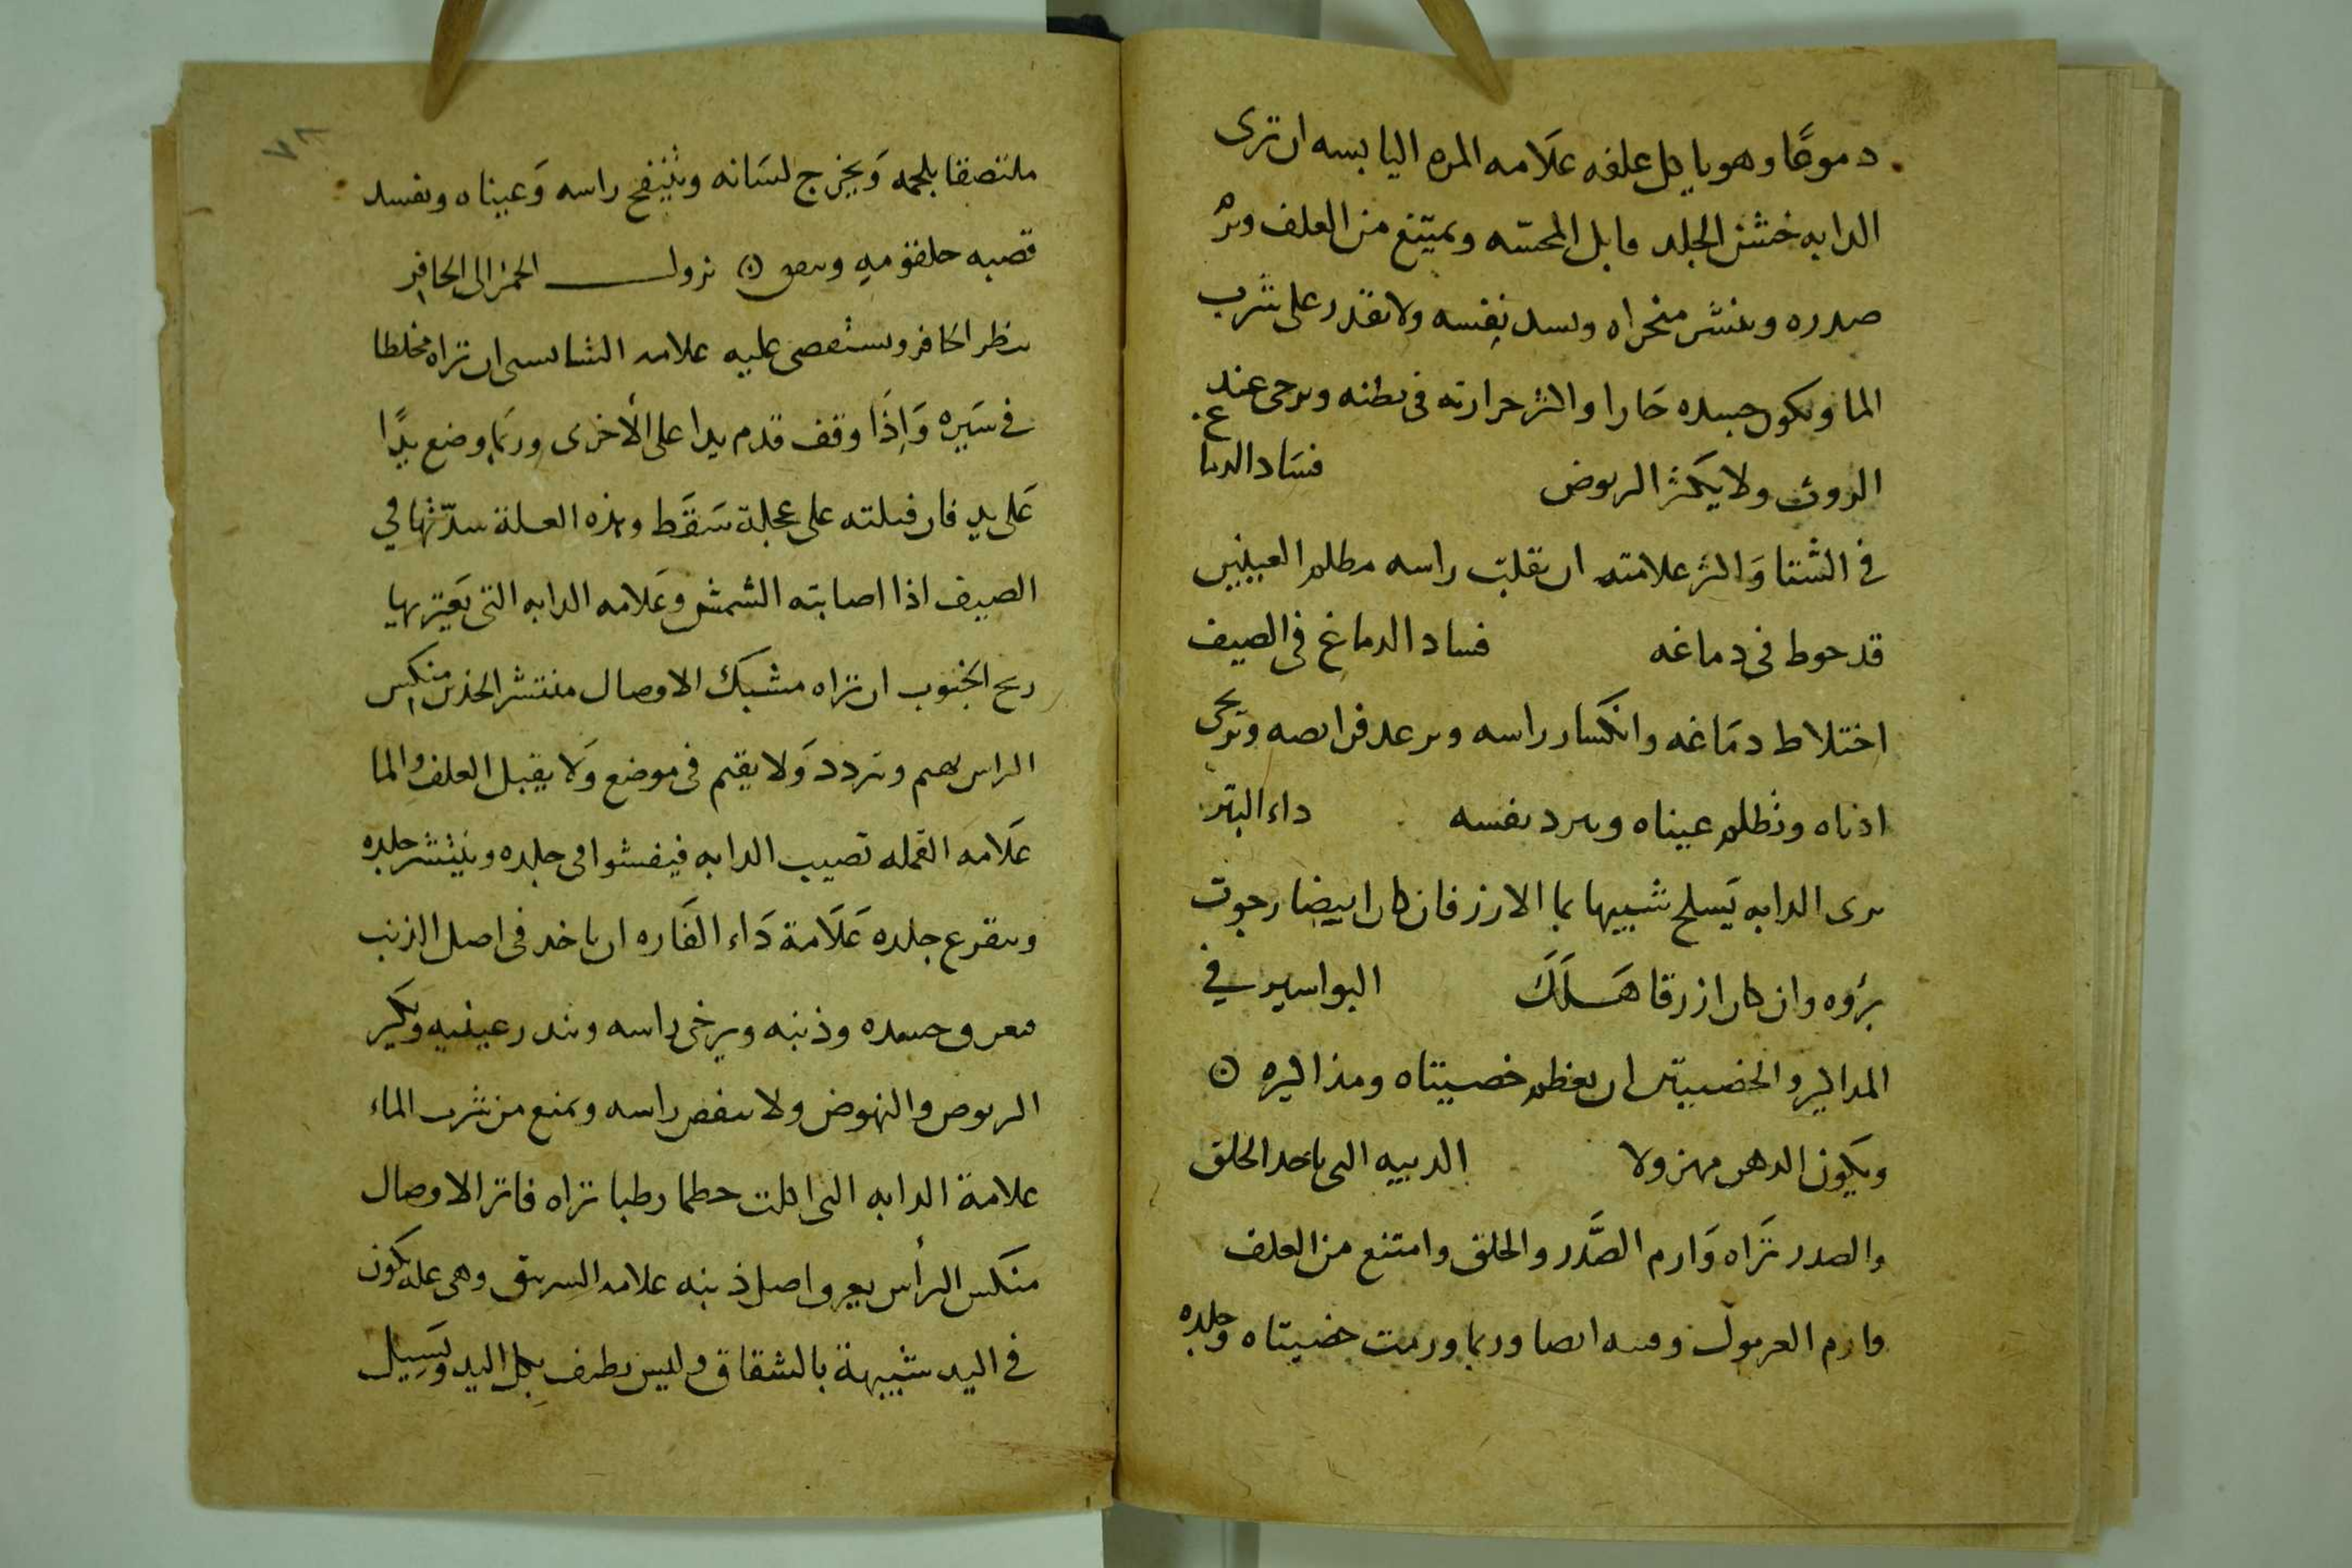 دموعًا وهو ياكل علفه علَامه المره اليابسه ان ترى
الدابه خشن الجلد قابل المحسّه ويمتنع من العلف ويرم
صدره وينتشر منخراه ويسد نفسه ولا يقدر على شرب
الما ويكون جسده حَارا واكثر حرارته فى بطنه ويرخى عند
الروث ولا يكثر الربوض فسَاد الدماغ
فى الشتا وَاكثر علامته ان يقلب راسه مظلم العينين
قد حوط فى دماغه فساد الدماغ فى الصيف
اختلاط دمَاغه وانكسار راسه ويرعد فرايصه ويرخى
اذناه وتظلم عيناه ويبرد نفسه داء البقر
يرى الدابه يَسلح شبيها بما الارز فان كان ابيضا رجوت
برؤه وان كان ازرقا هَلَكَ البواسير في
المداكير والخصيتين ان يعظم خصيتاه ومذاكيره ن
ويكون الدهر مهزولا الدبيه التى ياخد الحلق
والصدر تَراه وَارم الصَّدر والحلق وامتنع من العلف
وارم الغرمول وفيه ايضا وربما ورمت خصيتاه وجلده
٧٨
ملتصقا بلحمه وَيخرج لسَانه وينتفخ راسه وَعيناه ويفسد
قصبه حلقوميه ن نزول الحمر الى الحافر
ينظر الحافر ويستقصى عليه علامه ان تراه مخلطا
فى سَيره وَاِذَا وقف قدم يدا على الأخرى وربَما وضع يدًا
عَلى يد فان فتلته على عجلة سَقَط وهذه العلة شدّتها في
الصيف اذا اصابته الشمس وعَلامه الدابه التى يَعتريها
ريح الجنوب ان تراه مشبك الاوصال منتشر منكس
الراس يهيم ويتردد وَلا يقيم فى موضع وَلا يقبل العلف والما
علَامه القمله تصيب الدابه فيفشوا فى جلده وينتشر جلده
ويتقرع جلده عَلَامة دَاء الفَاره ان ياخد فى اصل الذنب
فيعرق جسده وذنبه ويرخى راسه ويدر عينيه ويكثر
الربوض والنهوض ولا ينفض راسه ويمنع من شرب الماء
علامة الدابه التى اكلت حطما رطبا تراه فاتر الاوصال
منكس الرأس يعرق اصل ذنبه علامه وهى عله تكون
فى اليد شبيهة بالشقاق وليس بطرف بكل اليد وَيَسِيل